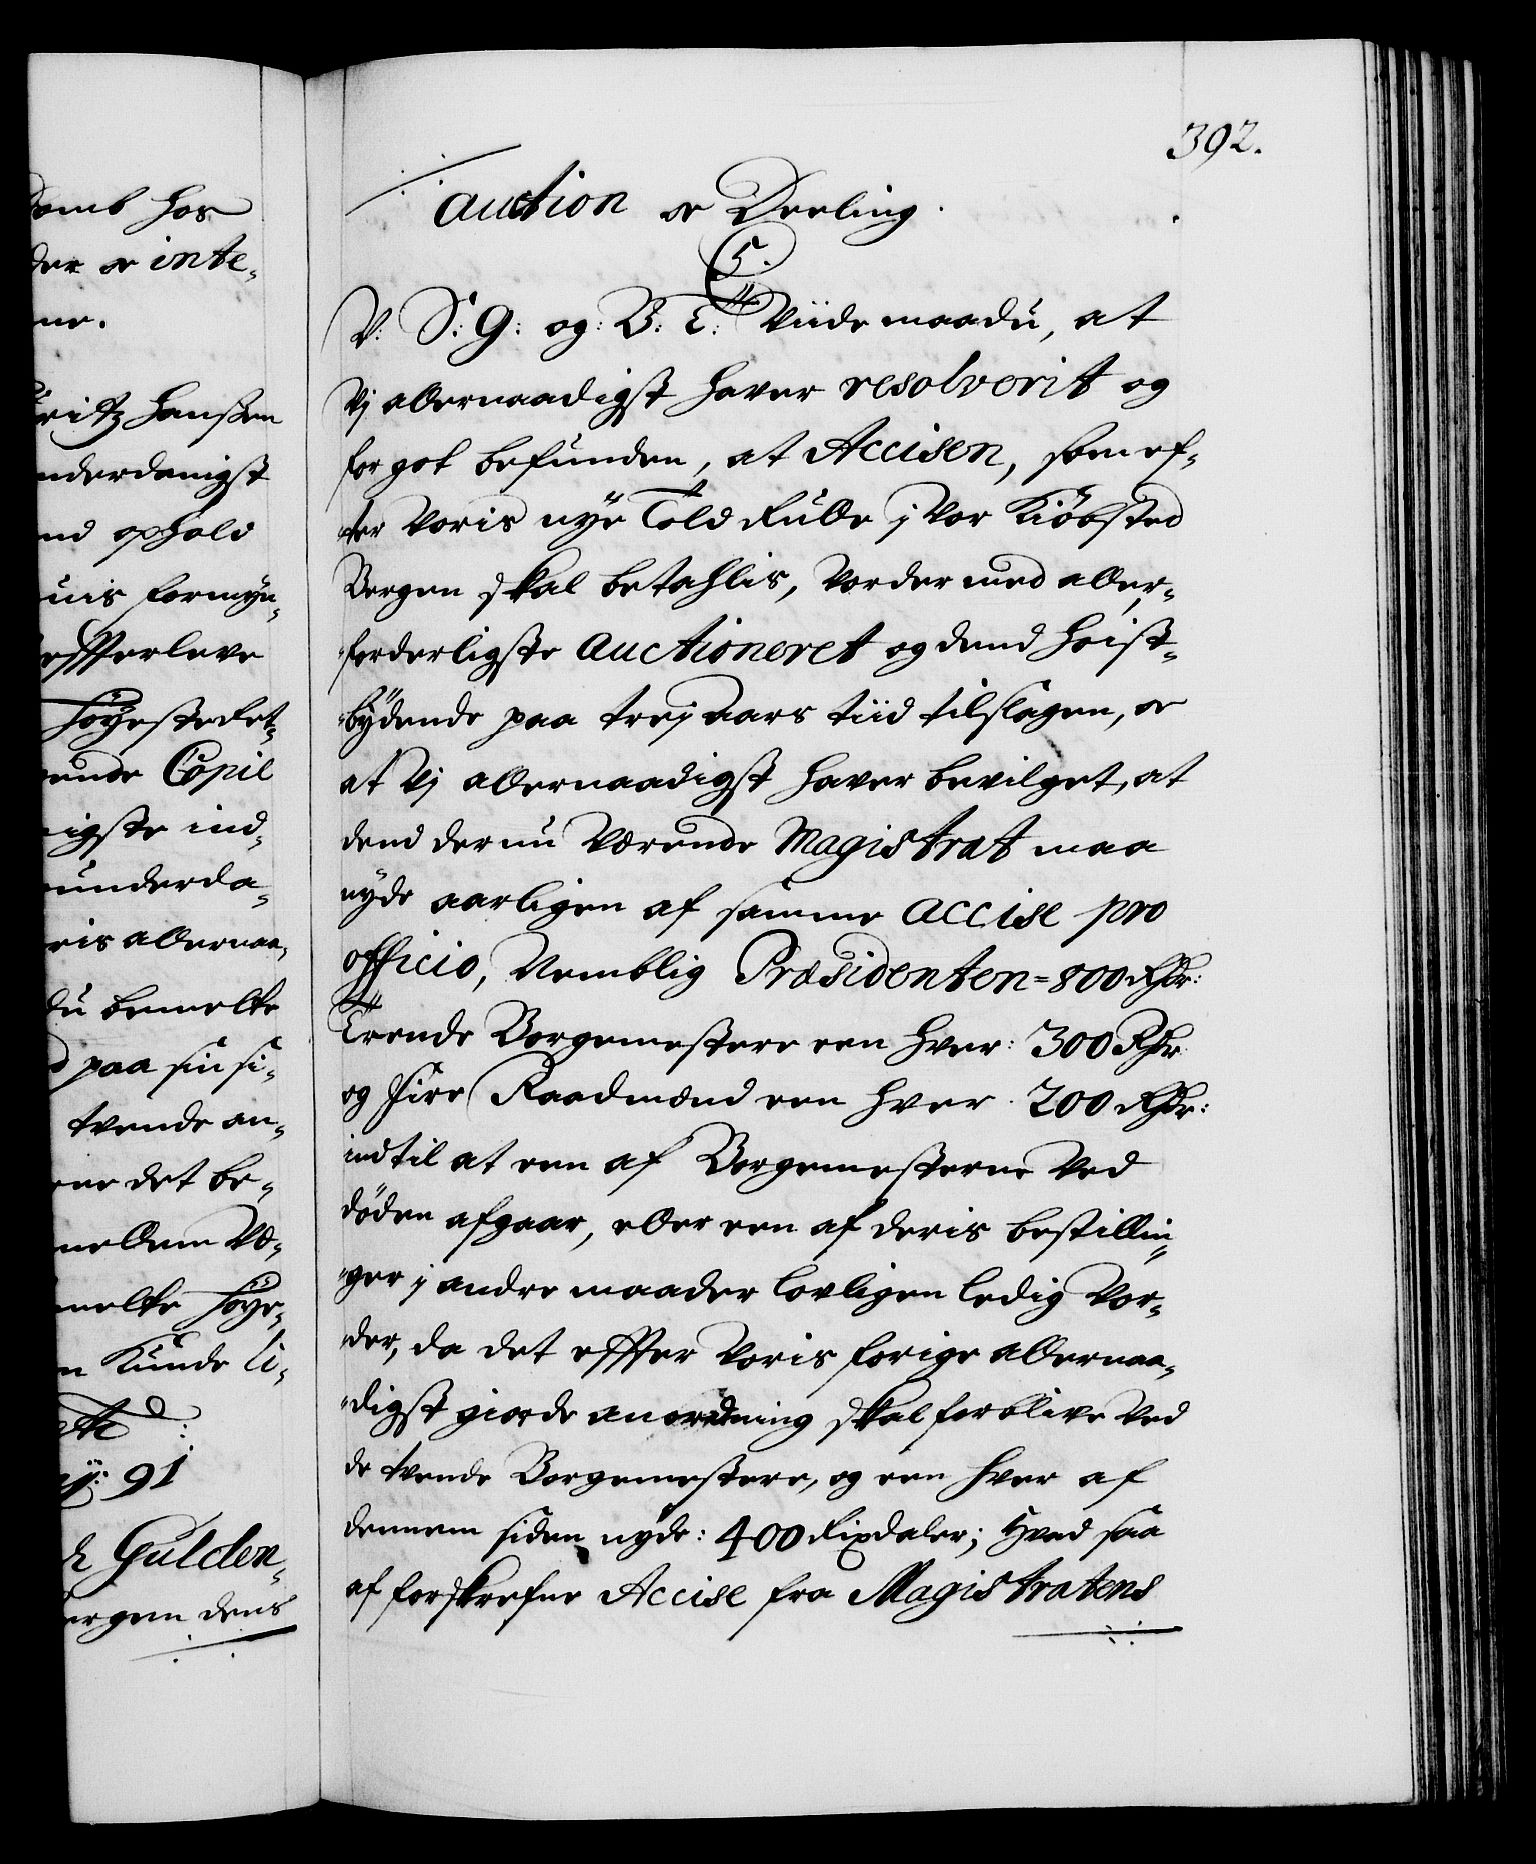 392.
Domb hos
der oc inte-
ne.
uritz Hanssen
nderdanigst
nd ophold
uis formyn-
effterleve
Høyestæret-
ende Copie
igste ind-
underda-
ris allernaa-
du bemelte
d paa sin si-
tvende an-
ne det be-
mellem Væ-
melte Høye-
n Kunde li-
91
Gulden-
ergen dens
auction oc Deeling.
5.
V: S: G: og: B: T: Viide maa du, at
Vj allernaadigst haver resolverit og
for got befunden, at Accisen, som ef-
ter Voris nye Told Rulle j Vor Kiøbsted
Bergen skal betahlis, Vorder med aller-
forderligste auctioneret og dend høist-
bydende paa trej aars tiid tilslagen, oc
at Vj allernaadigst haver bevilget, at
dend der nu Værende Magistrat maa
nyde aarligen af samme accise pro
officio, Nemblig Præsidenten = 800 Rdr:
Trende Borgemestere een hver: 300 Rdr
og fire Raadmænd een hver. 200 Rdr:
indtil at een af Borgemesterne Ved
døden afgaar, eller een af deris bestillin-
ger j andre maader lovligen ledig Vor-
der, da det effter Voris forige allernaa-
digst giorde anordning skal forblive Ved
de tvende Borgemestere, og een hver af
dennem siden nyde: 400 Rixdaler; Hvad saa
af forskrefne Accise fra Magistratens